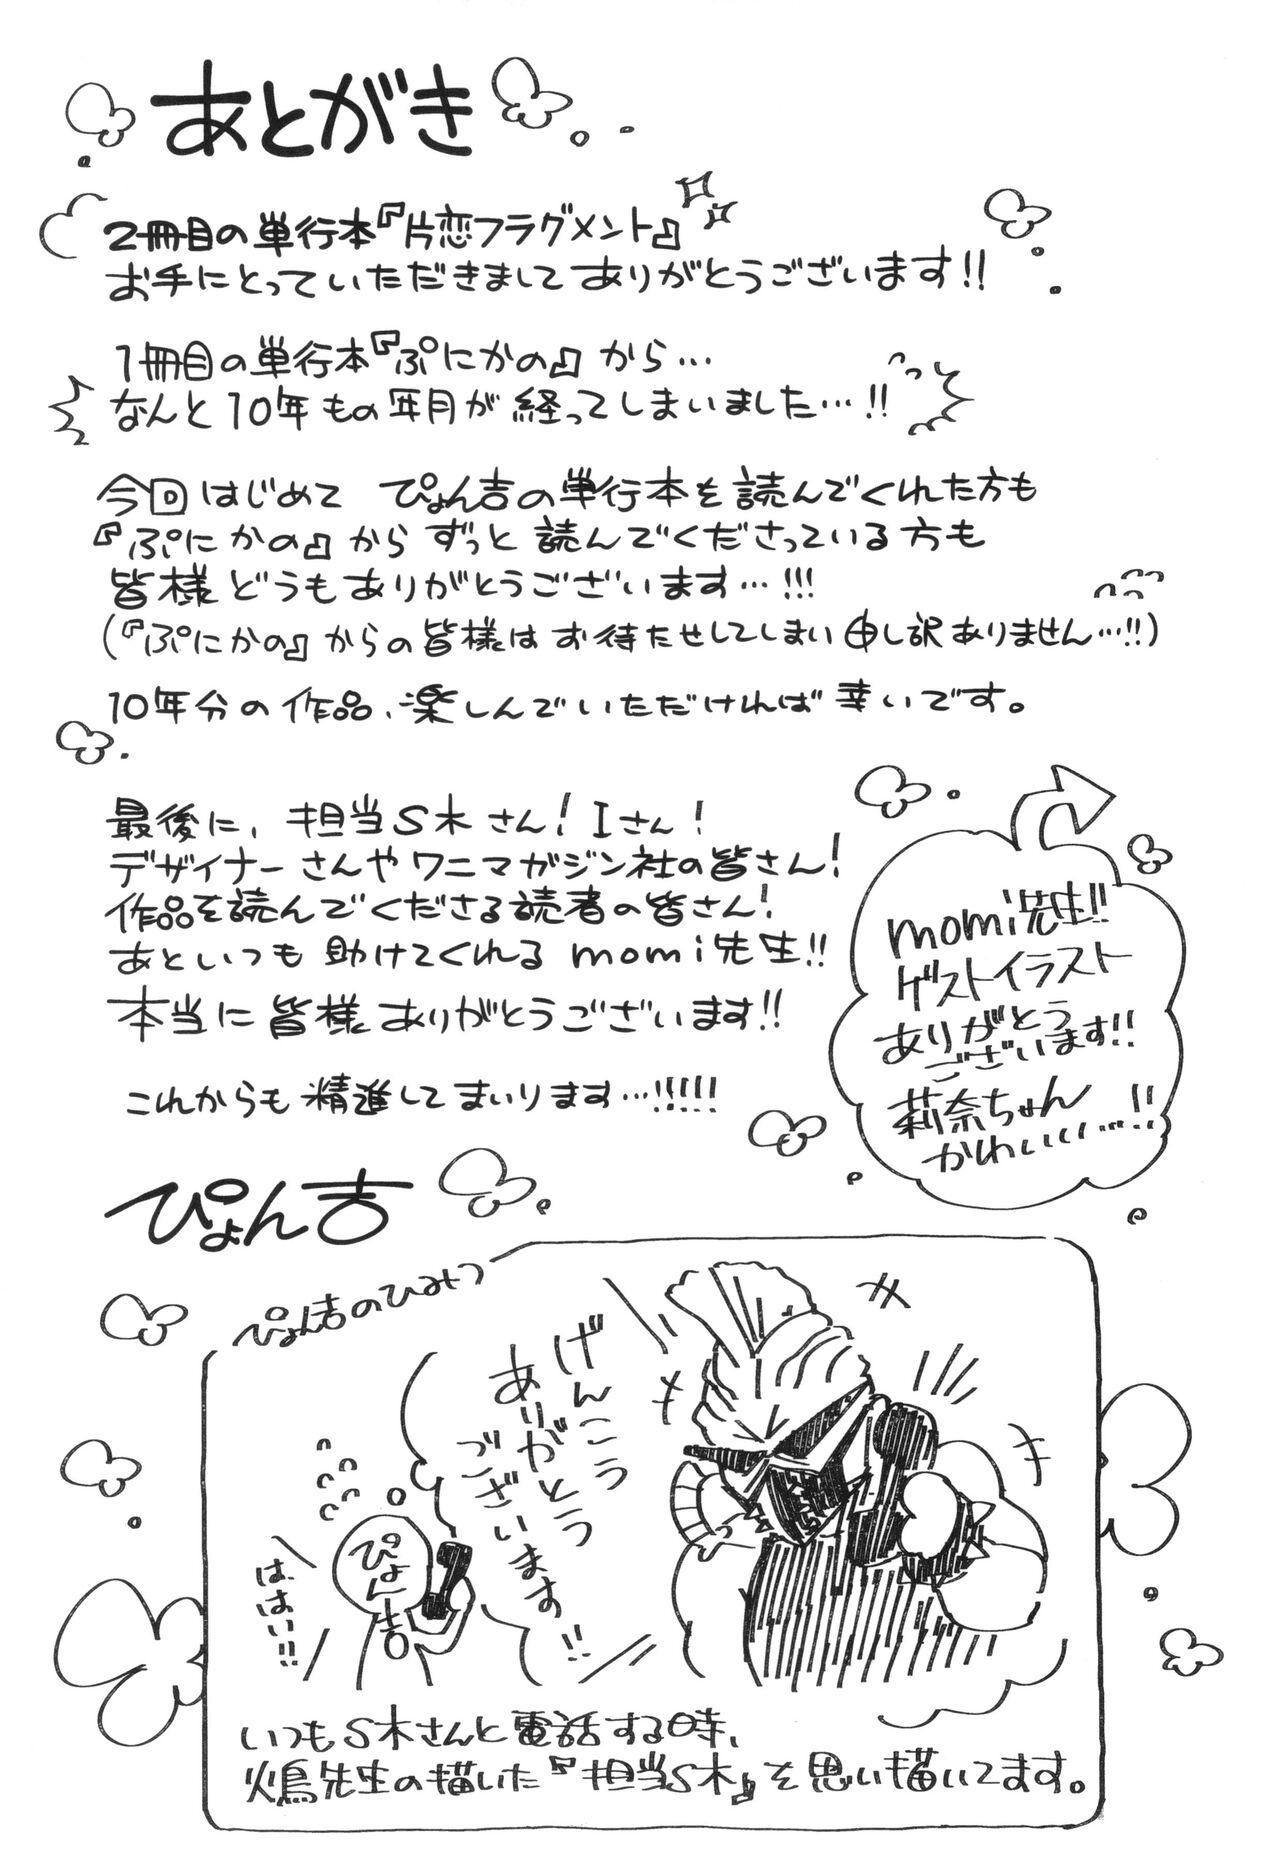 あとがき
2冊目の単行本『片恋フラグメント』
お手にとっていただきましてありがとうございます!!
1冊目の単行本『ぷにかの』から…
なんと10年もの年月が経ってしまいました…!!
今回はじめて ぴょん吉の単行本を読んでくれた方も
『ぷにかの』からずっと読んでくださっている方も
皆様どうもありがとうございます…!!!
(『ぷにかの』からの皆様はお待たせしてしまい申し訳ありません…!!)
10年分の作品、楽しんでいただければ幸いです。
最後に、担当S木さん!Iさん!
デザイナーさんやワニマガジン社の皆さん!
作品を読んでくださる読者の皆さん!
あといつも助けてくれるmomi先生!!
本当に皆様ありがとうございます!!
これからも精進してまいります…!!!!!
momi先生!!
ゲストイラスト
ありがとう
ございます!!
莉奈ちゃん
かわいいい…!!
ぴょん吉
ぴょん吉のひみつ
げんこう
ありがとう
ございます!!
ぴょん吉
は、はい!!
いつもS木さんと電話する時、
火鳥先生の描いた『担当S木』を思い描いてます。